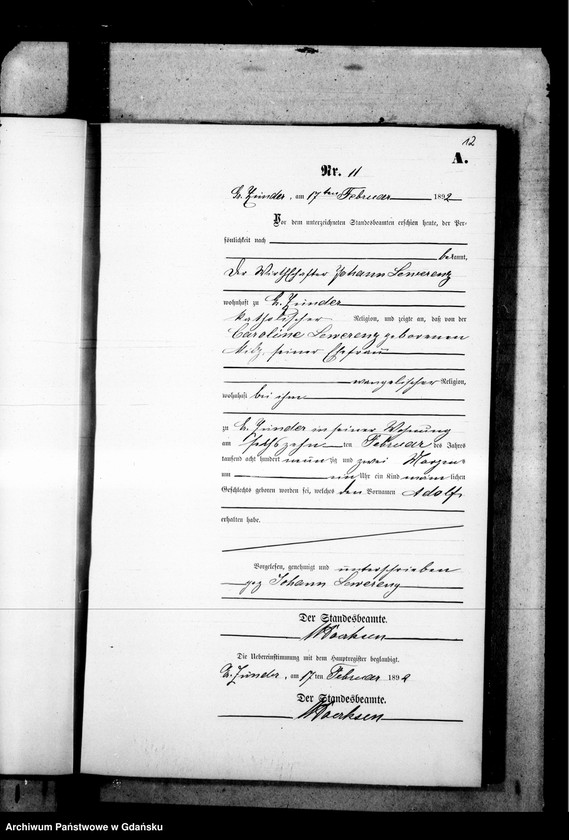 12
A.
Nr. 11
Gr. Zünder, am 17ten Februar 1892
Vor dem unterzeichneten Standesbeamten erschien heute, der Per-
sönlichkeit nach
bekannt,
der Wirthschafter Johann Lewerenz
wohnhaft zu Gr. Zünder
katholischer Religion, und zeigte an, daß von der
Caroline Lewerenz geborenen
seiner Ehefrau
evangelischer Religion,
wohnhaft bei ihm
zu Gr. Zünder in seiner Wohnung
am sechszehn ten Februar des Jahres
tausend acht hundert neunzig und zwei Morgens
um ein Uhr ein Kind männlichen
Geschlechts geboren worden sei, welches den Vornamen Adolf
erhalten habe.
Vorgelesen, genehmigt und unterschrieben
gez Johann Lewerenz
Der Standesbeamte.
Die Uebereinstimmung mit dem Hauptregister beglaubigt.
Gr. Zünder, am 17ten Februar 1892
Der Standesbeamte.
Archiwum Państwowe w Gdańsku